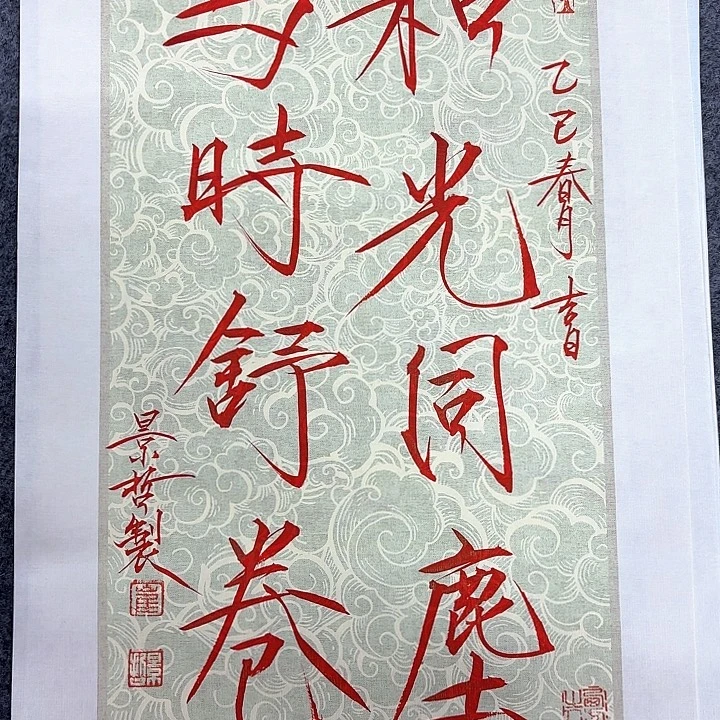 乙巳春月 吉日
和光同塵
与時舒卷
景哲製